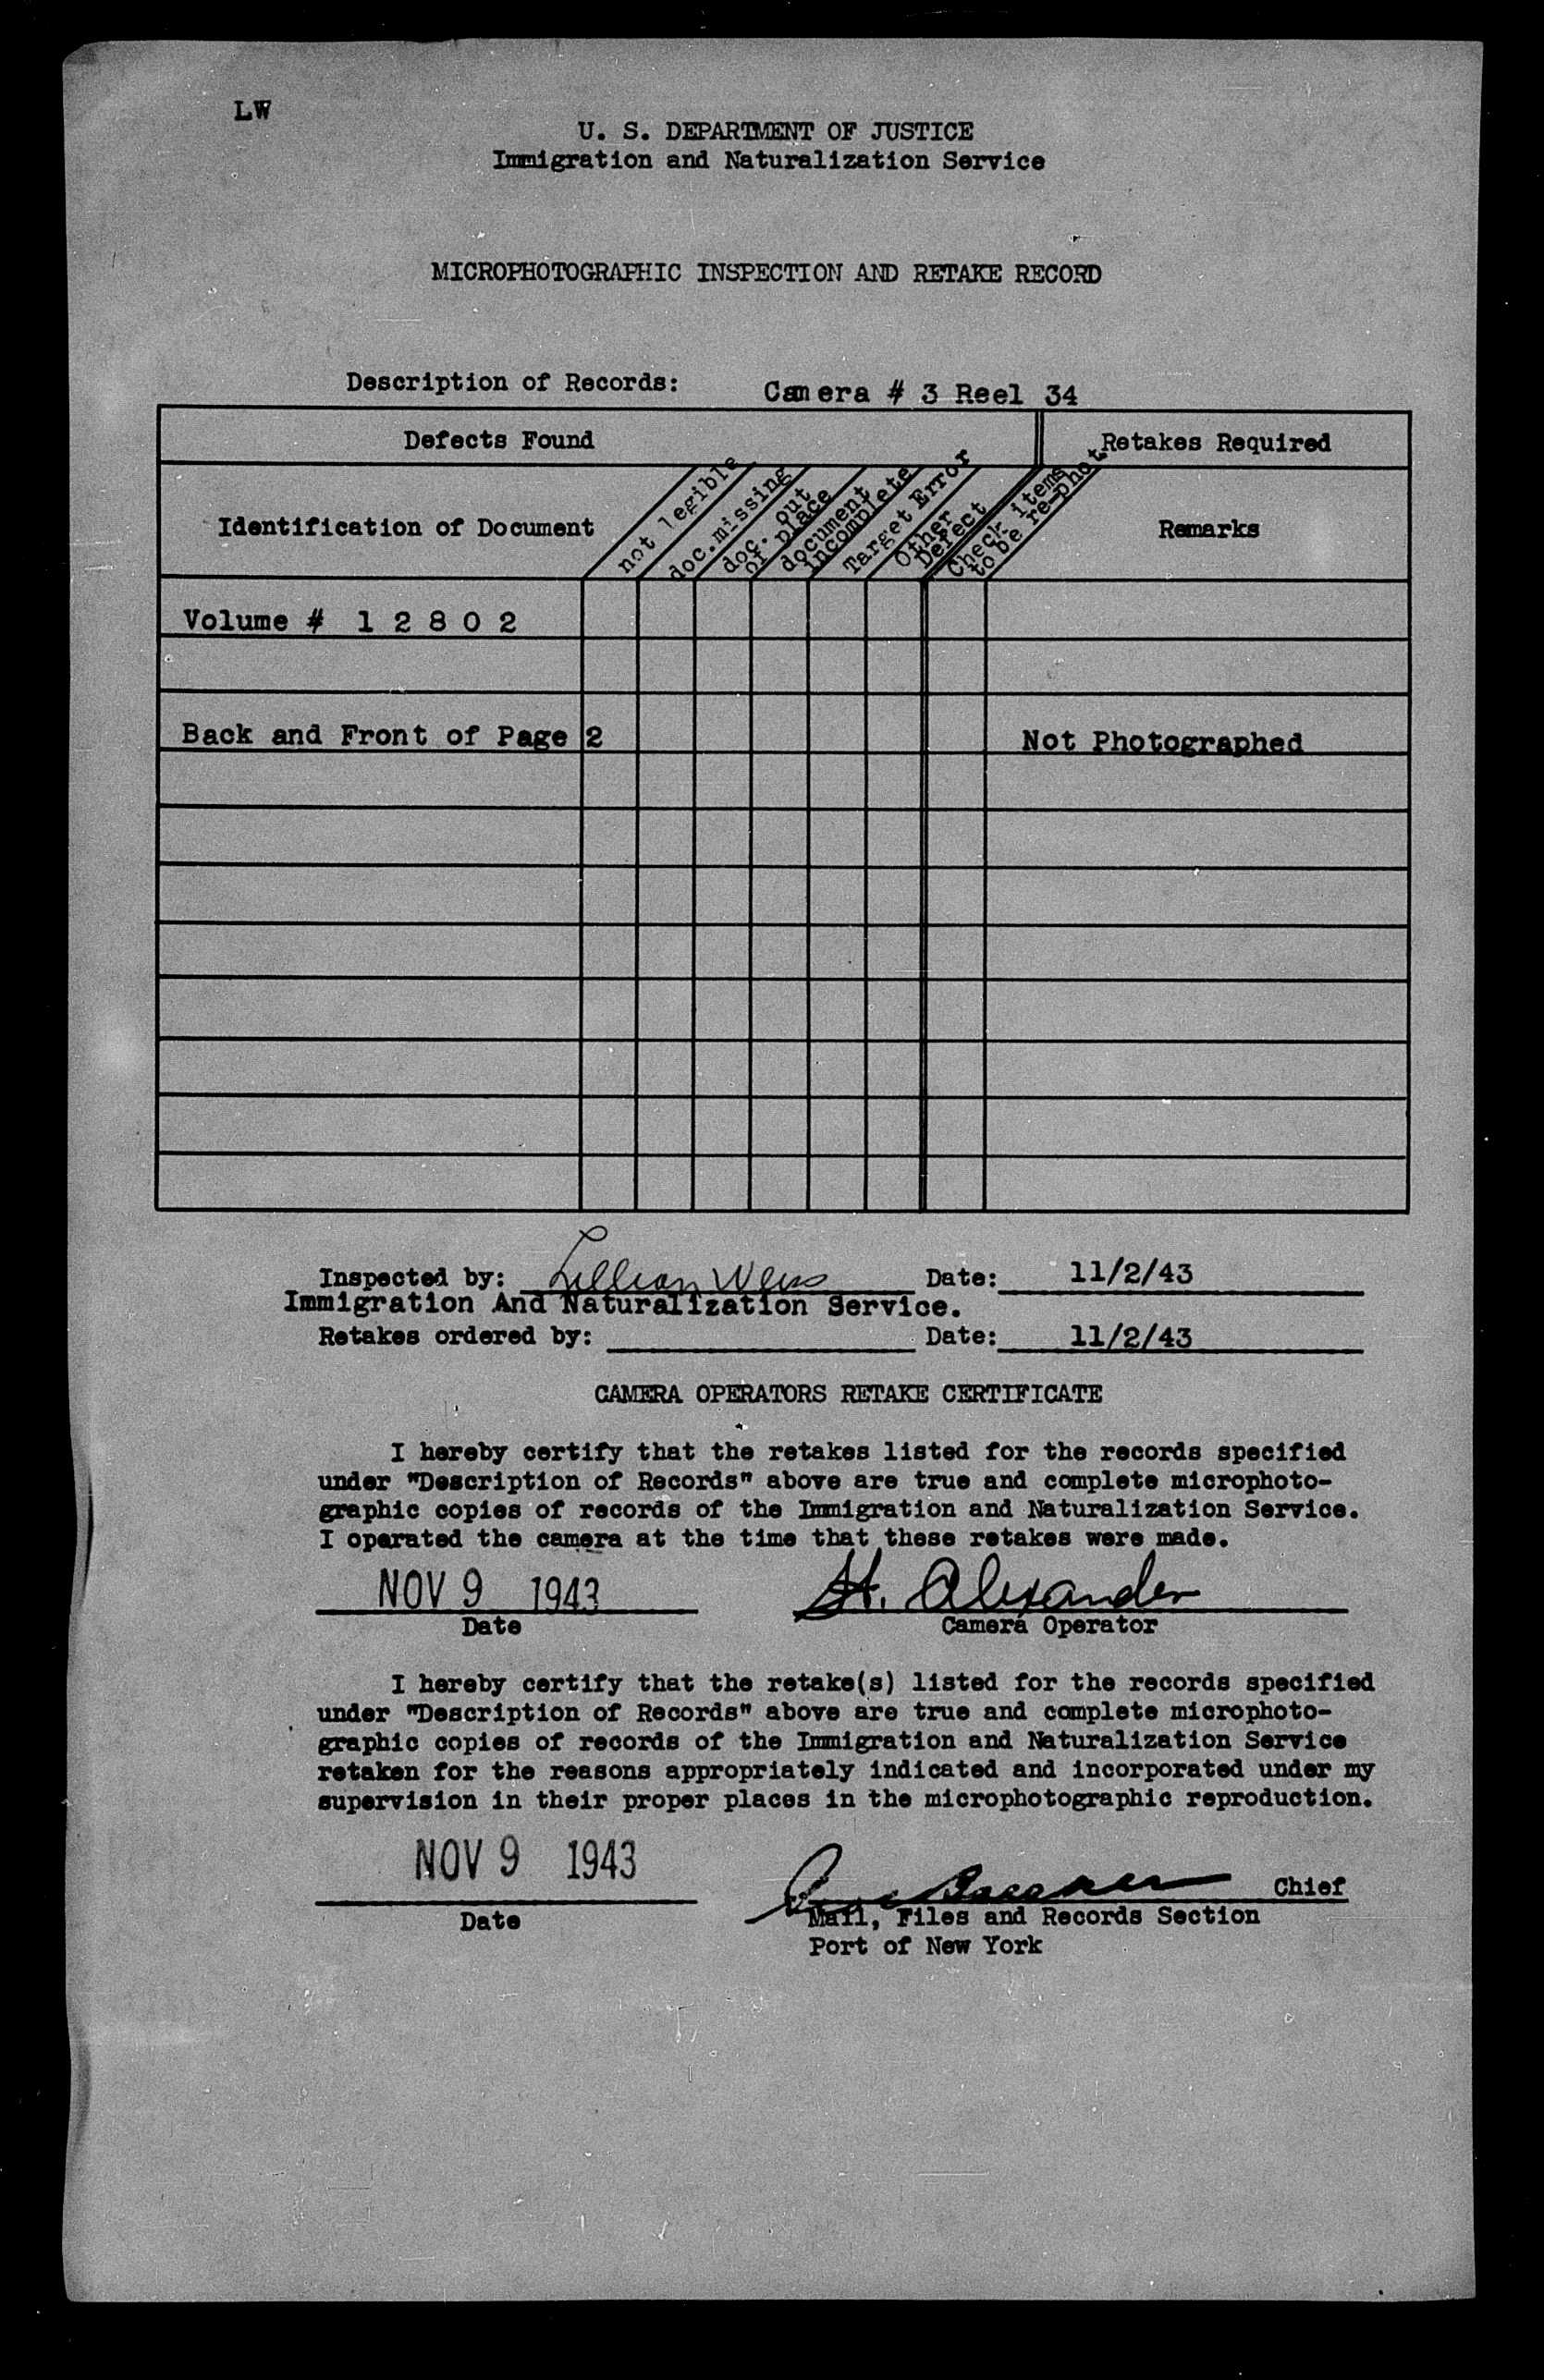 LW
U. S. DEPARTMENT OF JUSTICE
Immigration and Naturalization Service
MICROPHOTOGRAPHIC INSPECTION AND RETAKE RECORD
Description of Records: Camera # 3 Reel 34
Defects Found
Retakes Required
Identification of Document
not legible
doc. missing
doc. out
of place
document
incomplete
Target Error
Other
Defect
Check items
to be re-phot.
Remarks
Volume # 1 2 8 0 2
Back and Front of Page 2 Not Photographed
Inspected by: Lillian Weiss Date: 11/2/43
Immigration And Naturalization Service.
Retakes ordered by: Date: 11/2/43
CAMERA OPERATORS RETAKE CERTIFICATE
I hereby certify that the retakes listed for the records specified
under "Description of Records" above are true and complete microphoto-
graphic copies of records of the Immigration and Naturalization Service.
I operated the camera at the time that these retakes were made.
NOV 9 1943 H. Alexander
Date Camera Operator
I hereby certify that the retake(s) listed for the records specified
under "Description of Records" above are true and complete microphoto-
graphic copies of records of the Immigration and Naturalization Service
retaken for the reasons appropriately indicated and incorporated under my
supervision in their proper places in the microphotographic reproduction.
NOV 9 1943
Chief
Date Mail, Files and Records Section
Port of New York